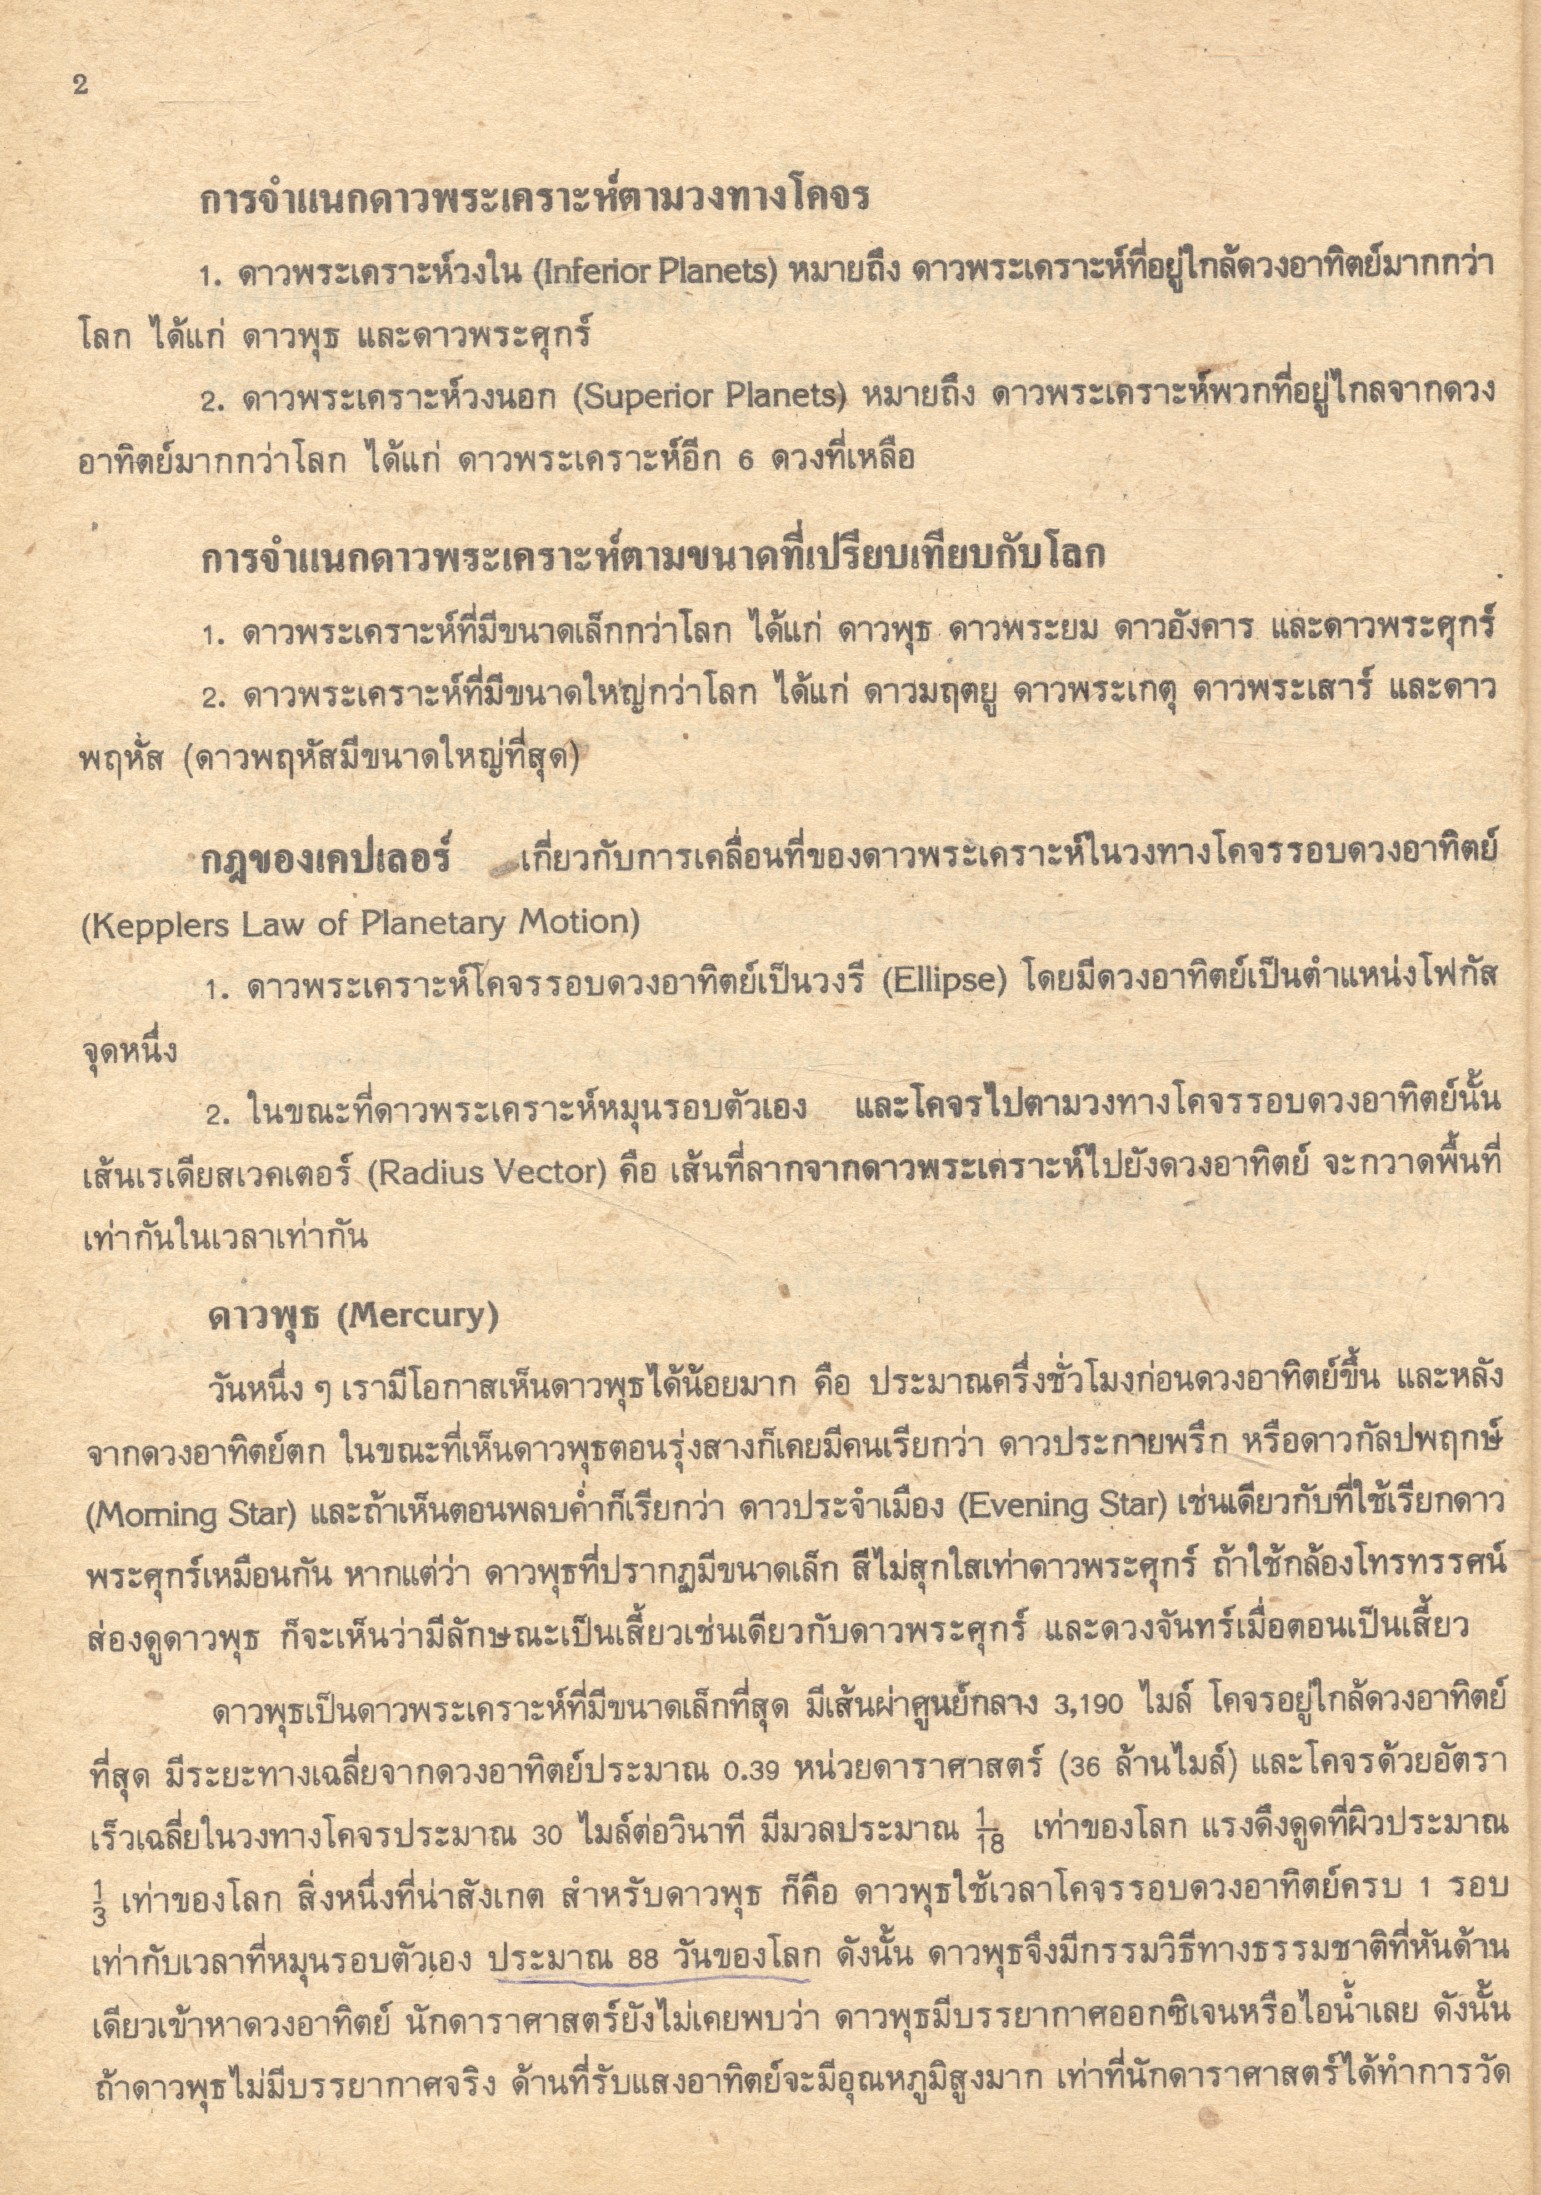 2
การจำแนกดาวพระเคราะห์ตามวงทางโคจร
1. ดาวพระเคราะห์วงใน (Inferior Planets) หมายถึง ดาวพระเคราะห์ที่อยู่ใกล้ดวงอาทิตย์มากกว่า
โลก ได้แก่ ดาวพุธ และดาวพระศุกร์
2. ดาวพระเคราะห์วงนอก (Superior Planets) หมายถึง ดาวพระเคราะห์พวกที่อยู่ไกลจากดวง
อาทิตย์มากกว่าโลก ได้แก่ ดาวพระเคราะห์อีก 6 ดวงที่เหลือ
การจำแนกดาวพระเคราะห์ตามขนาดที่เปรียบเทียบกับโลก
1. ดาวพระเคราะห์ที่มีขนาดเล็กกว่าโลก ได้แก่ ดาวพุธ ดาวพระยม ดาวอังคาร และดาวพระศุกร์
2. ดาวพระเคราะห์ที่มีขนาดใหญ่กว่าโลก ได้แก่ ดาวมฤตยู ดาวพระเกตุ ดาวพระเสาร์ และดาว
พฤหัส (ดาวพฤหัสมีขนาดใหญ่ที่สุด)
กฎของเคปเลอร์ เกี่ยวกับการเคลื่อนที่ของดาวพระเคราะห์ในวงทางโคจรรอบดวงอาทิตย์
(Kepplers Law of Planetary Motion)
1. ดาวพระเคราะห์โคจรรอบดวงอาทิตย์เป็นวงรี (Ellipse) โดยมีดวงอาทิตย์เป็นตำแหน่งโฟกัส
จุดหนึ่ง
2. ในขณะที่ดาวพระเคราะห์หมุนรอบตัวเอง และโคจรไปตามวงทางโคจรรอบดวงอาทิตย์นั้น
เส้นเรเดียสเวคเตอร์ (Radius Vector) คือ เส้นที่ลากจากดาวพระเคราะห์ไปยังดวงอาทิตย์ จะกวาดพื้นที่
เท่ากันในเวลาเท่ากัน
ดาวพุธ (Mercury)
วันหนึ่ง ๆ เรามีโอกาสเห็นดาวพุธได้น้อยมาก คือ ประมาณครึ่งชั่วโมงก่อนดวงอาทิตย์ขึ้น และหลัง
จากดวงอาทิตย์ตก ในขณะที่เห็นดาวพุธตอนรุ่งสางก็เคยมีคนเรียกว่า ดาวประกายพรึก หรือดาวกัลปพฤกษ์
(Morning Star) และถ้าเห็นตอนพลบค่ำก็เรียกว่า ดาวประจำเมือง (Evening Star) เช่นเดียวกับที่ใช้เรียกดาว
พระศุกร์เหมือนกัน หากแต่ว่า ดาวพุธที่ปรากฏมีขนาดเล็ก สีไม่สุกใสเท่าดาวพระศุกร์ ถ้าใช้กล้องโทรทรรศน์
ส่องดูดาวพุธ ก็จะเห็นว่ามีลักษณะเป็นเสี้ยวเช่นเดียวกับดาวพระศุกร์ และดวงจันทร์เมื่อตอนเป็นเสี้ยว
ดาวพุธเป็นดาวพระเคราะห์ที่มีขนาดเล็กที่สุด มีเส้นผ่าศูนย์กลาง 3,190 ไมล์ โคจรอยู่ใกล้ดวงอาทิตย์
ที่สุด มีระยะทางเฉลี่ยจากดวงอาทิตย์ประมาณ 0.39 หน่วยดาราศาสตร์ (36 ล้านไมล์) และโคจรด้วยอัตรา
เร็วเฉลี่ยในวงทางโคจรประมาณ 30 ไมล์ต่อวินาที มีมวลประมาณ 1/18 เท่าของโลก แรงดึงดูดที่ผิวประมาณ
1/3 เท่าของโลก สิ่งหนึ่งที่น่าสังเกต สำหรับดาวพุธ ก็คือ ดาวพุธใช้เวลาโคจรรอบดวงอาทิตย์ครบ 1 รอบ
เท่ากับเวลาที่หมุนรอบตัวเอง ประมาณ 88 วันของโลก ดังนั้น ดาวพุธจึงมีกรรมวิธีทางธรรมชาติที่หันด้าน
เดียวเข้าหาดวงอาทิตย์ นักดาราศาสตร์ยังไม่เคยพบว่า ดาวพุธมีบรรยากาศออกซิเจนหรือไอน้ำเลย ดังนั้น
ถ้าดาวพุธไม่มีบรรยากาศจริง ด้านที่รับแสงอาทิตย์จะมีอุณหภูมิสูงมาก เท่าที่นักดาราศาสตร์ได้ทำการวัด